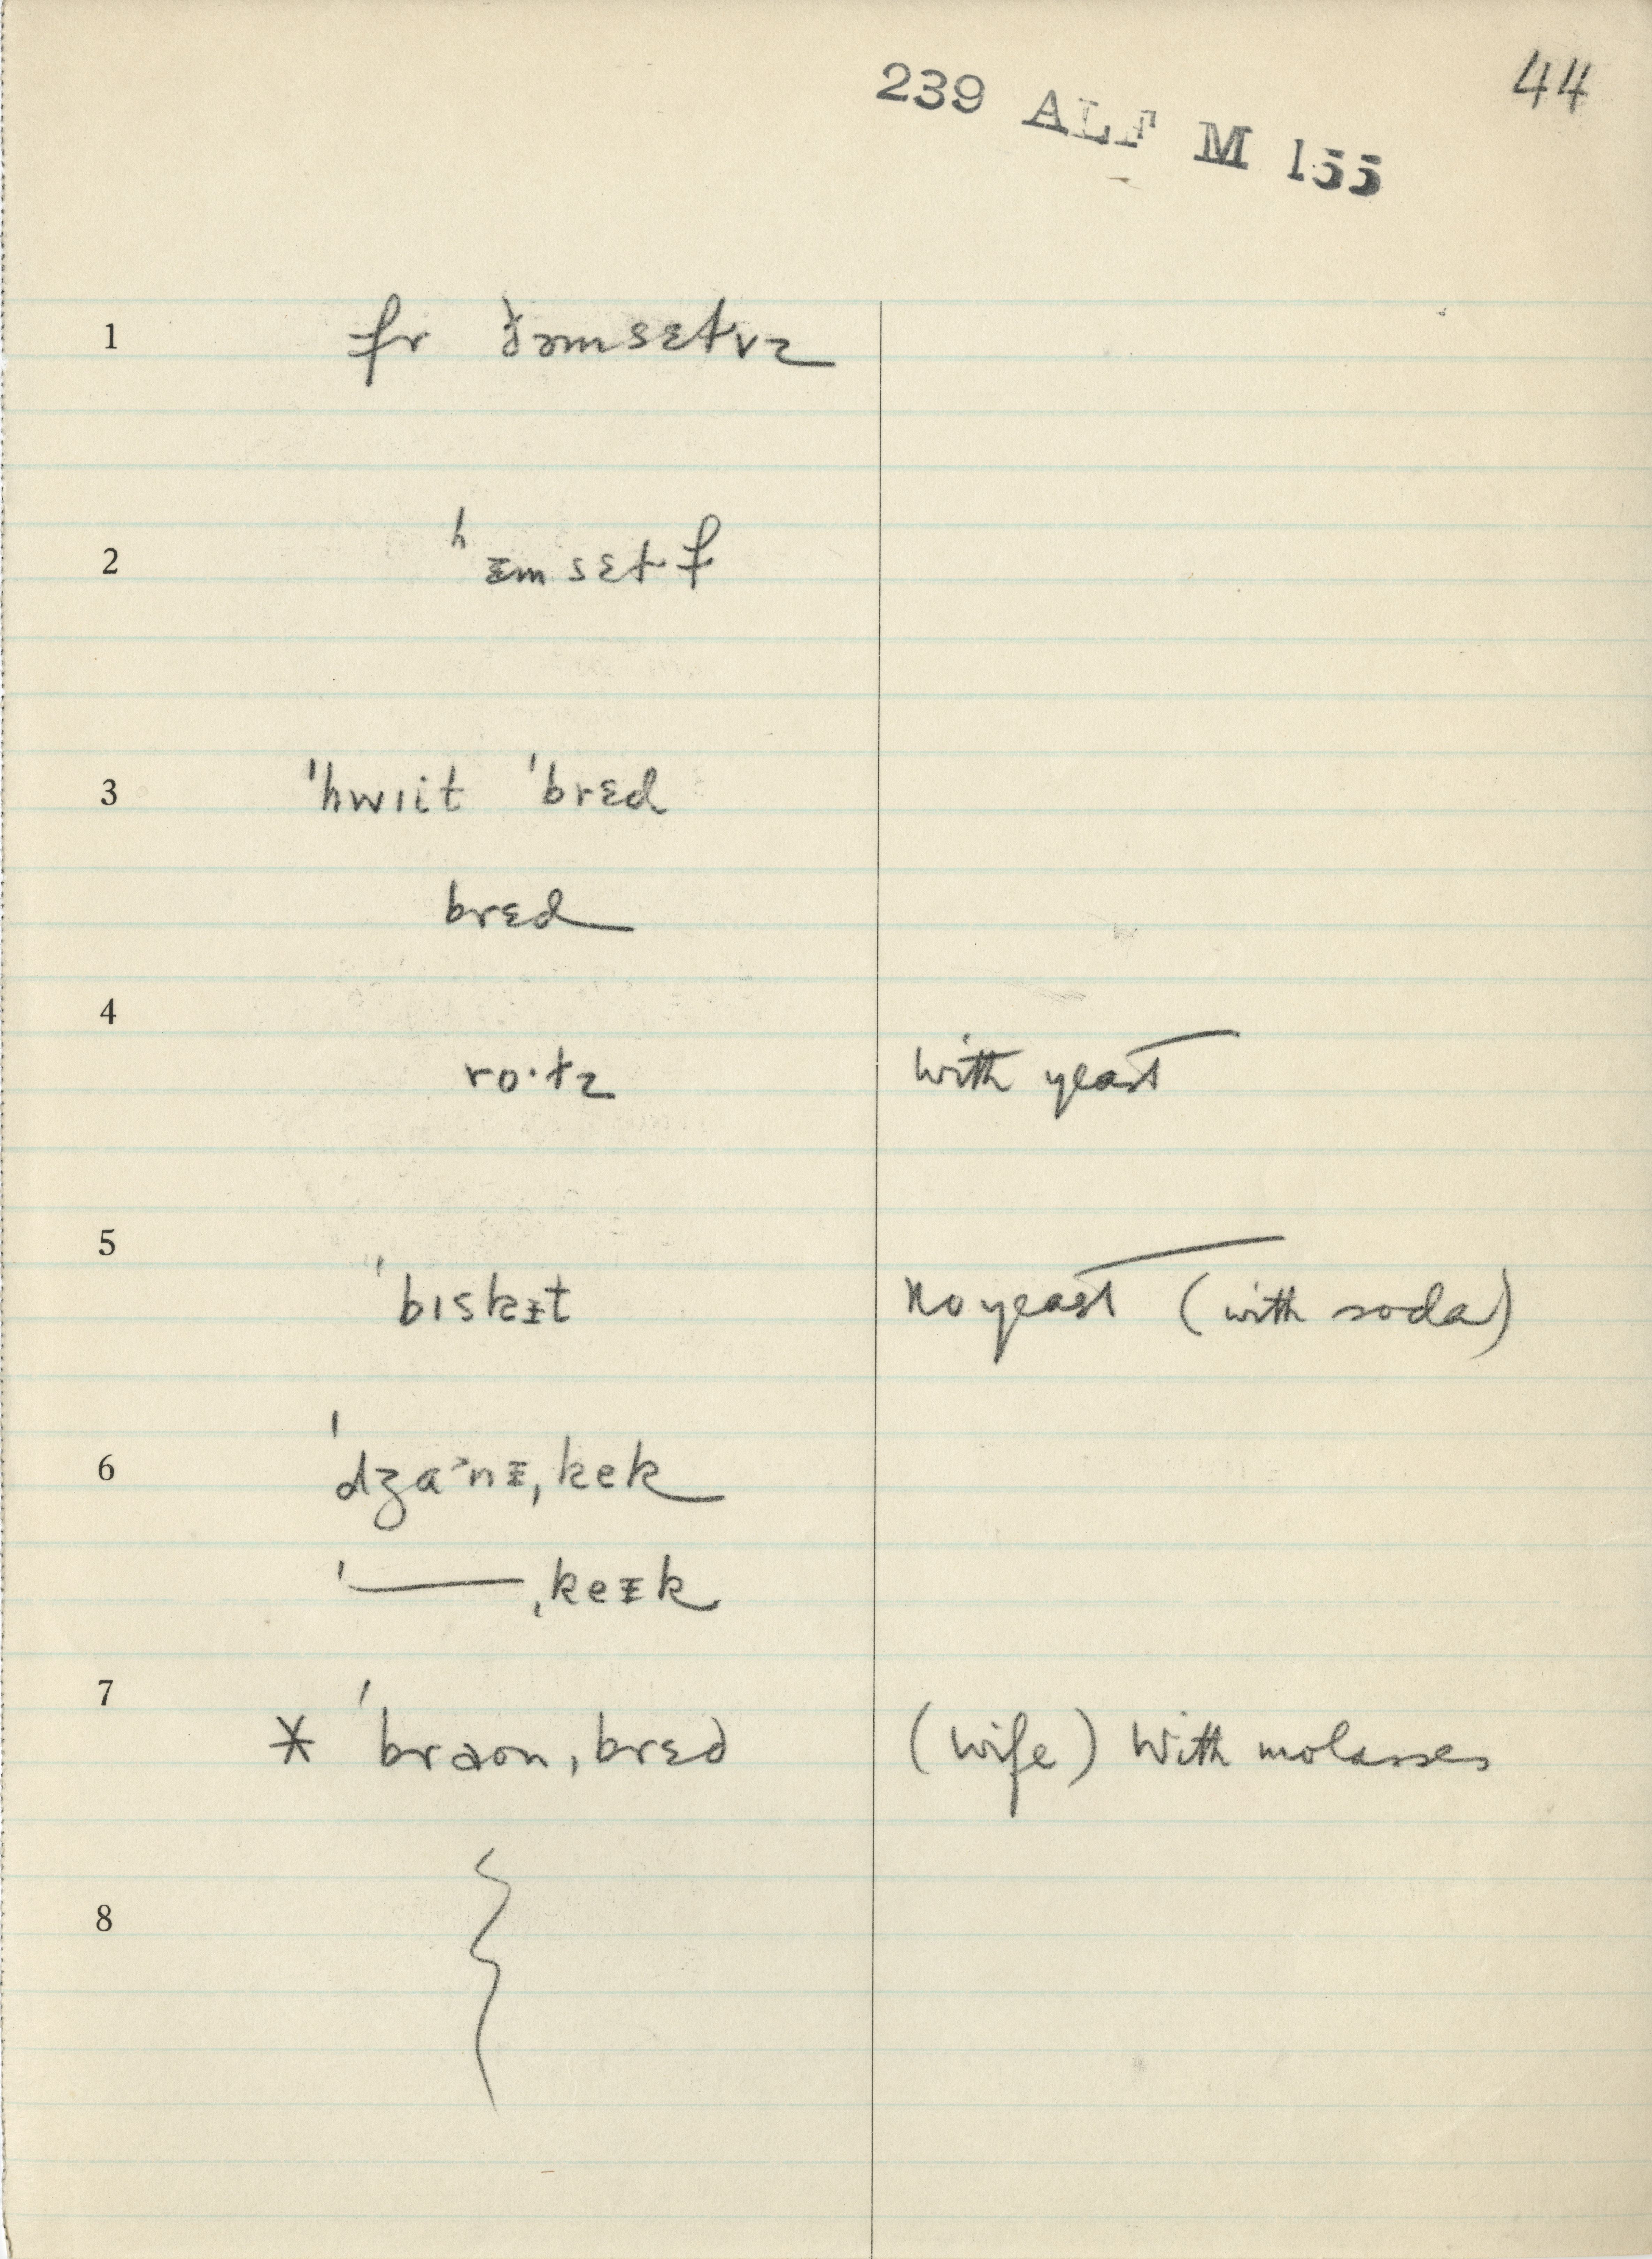 44
239 ALF M 155
1 fr ðəmsɛtvz
2 ʰɪ̵msɛtf
3 ˈhwɪit ˈbrɛd
brɛd
4
ro·tz with yeast
5
ˈbɪskɪ̵t no yeast (with soda)
6 ˈdʒaˑnɪ̵ˌkek
ˈ——ˌkeɪ̵k
7
* ˈbraonˌbrɛd (wife) with molasses
8